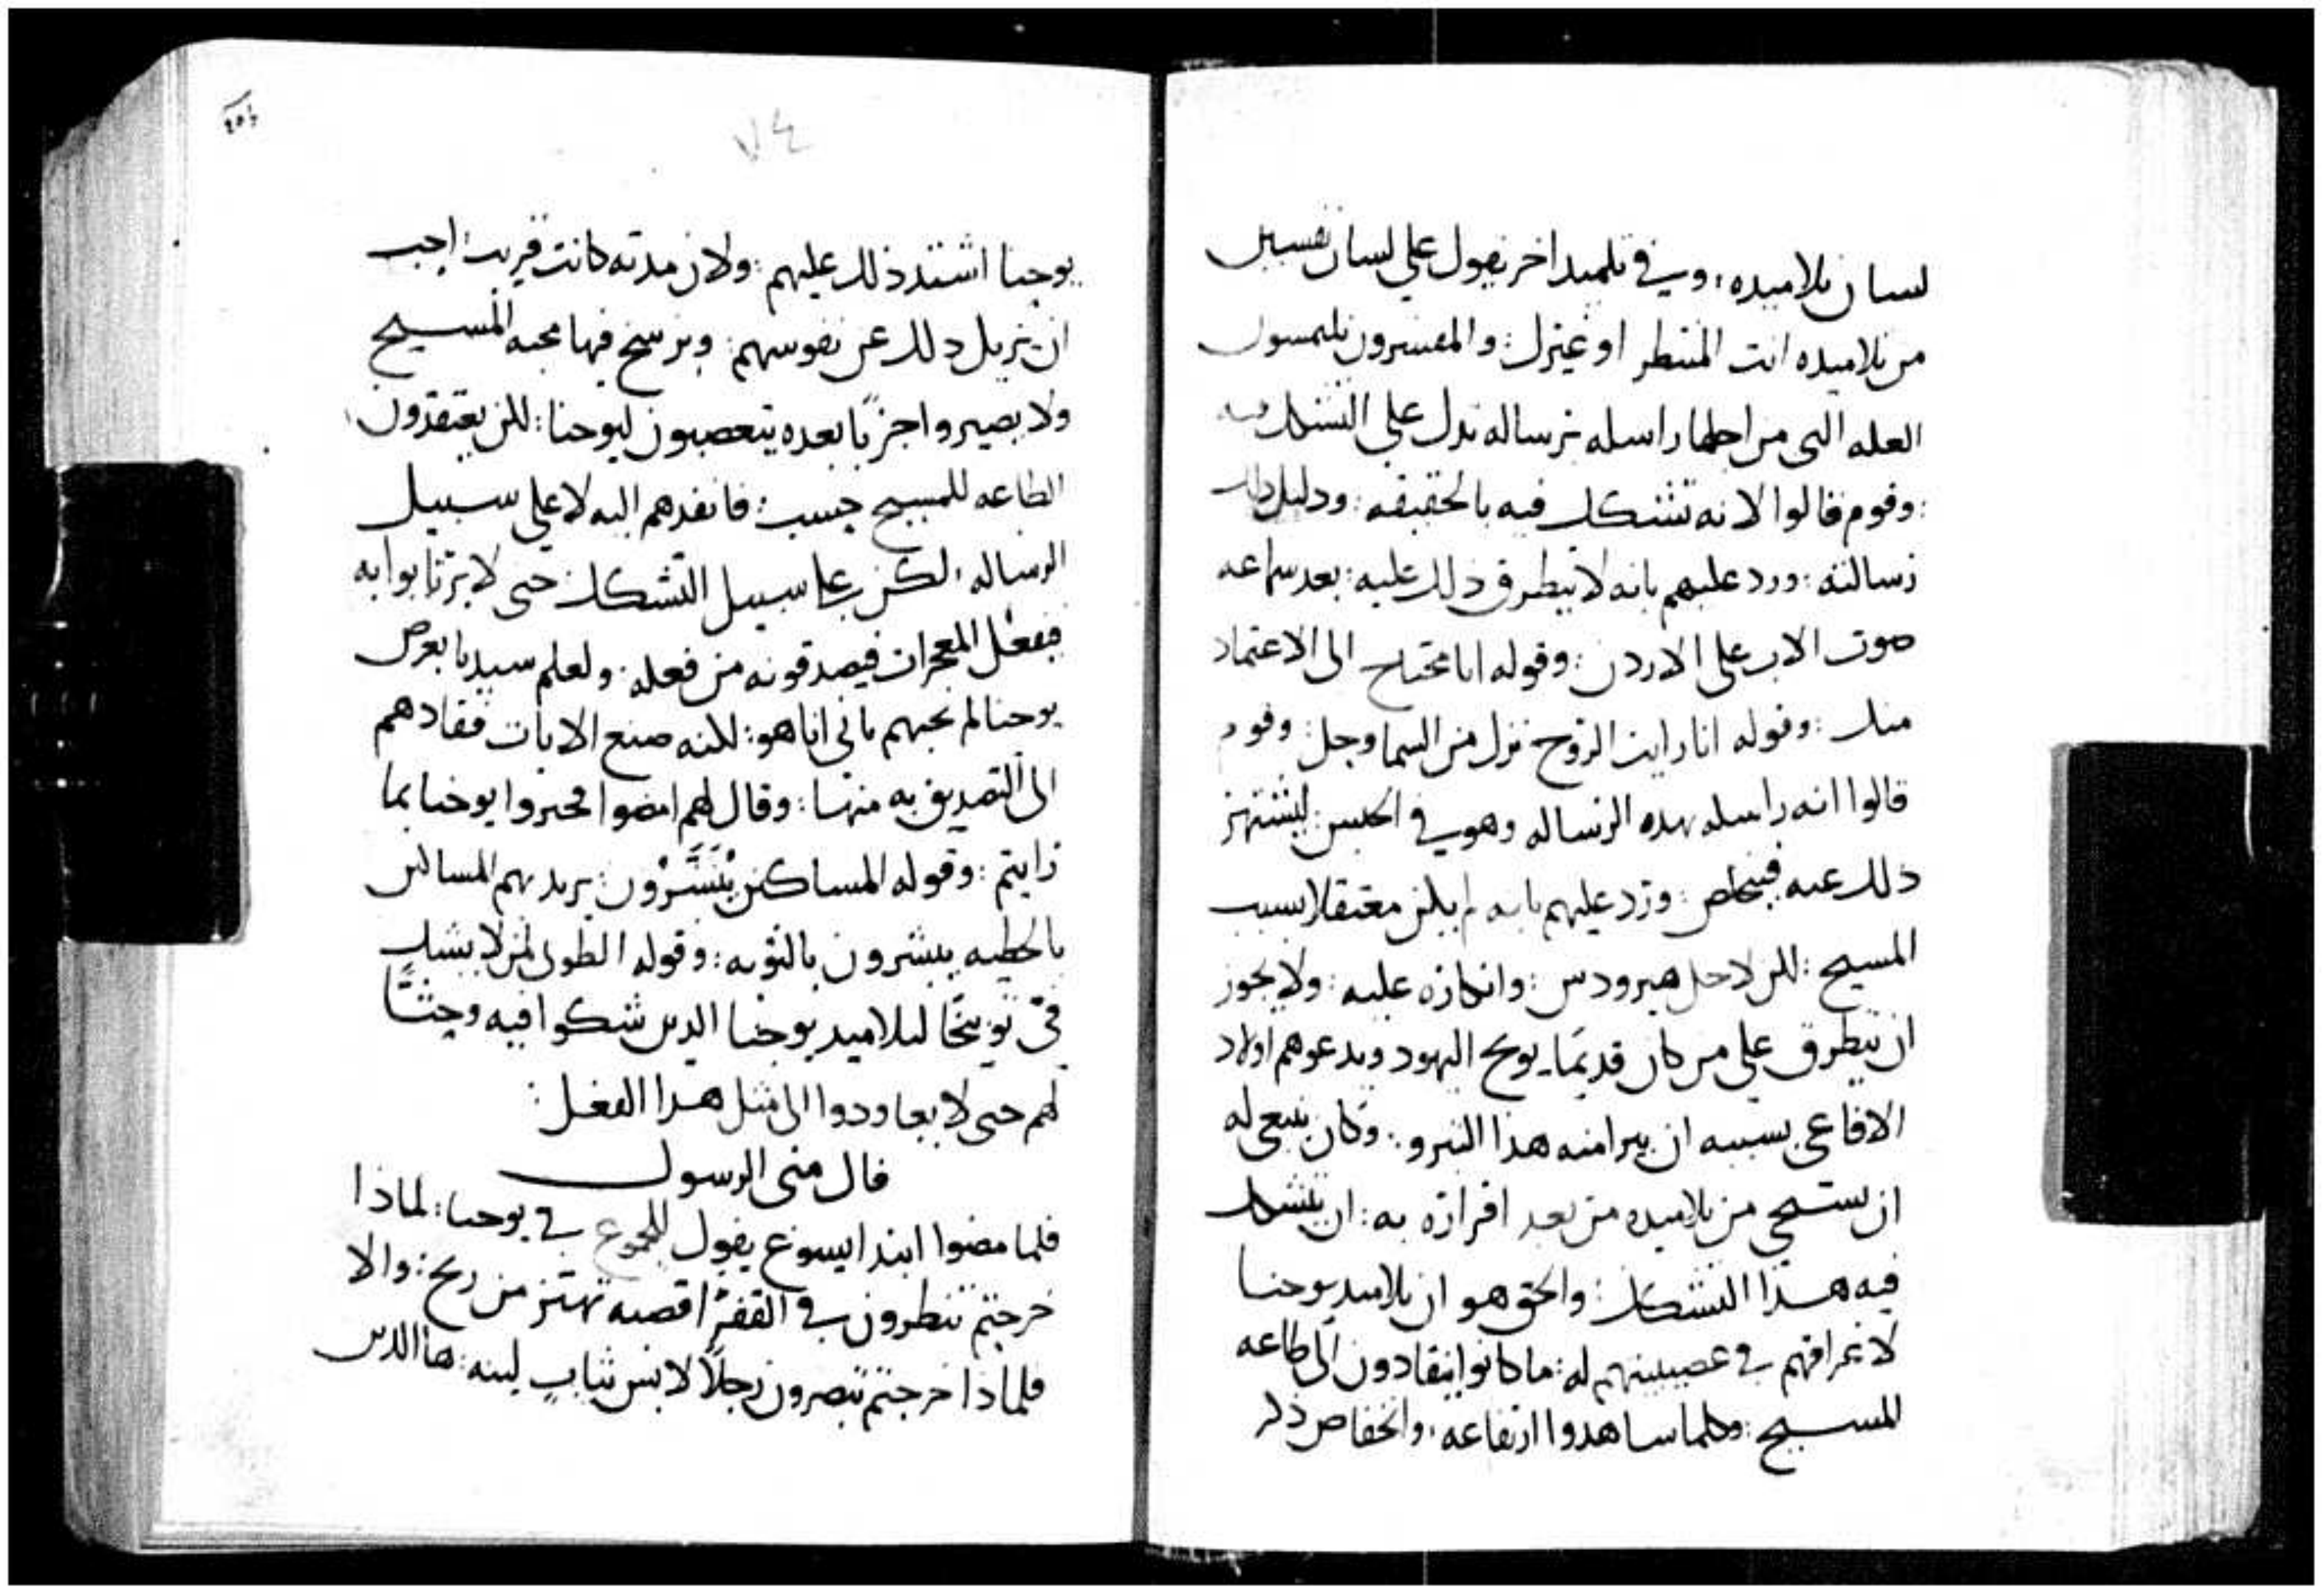 لسان تلاميده : وفي تلميد اخر يقول على لسان نفسين
من تلاميده انت المنتطر او غيرك : والمفسرون يلتمسون
العله التي من اجلها راسله برساله تدل على التشكك فيه
: وقوم قالوا لانه تشكك فيه بالحقيقه : ودليل دلك
رسالته : ورد عليهم بانه لا يتطرق ذلك عليه : بعد سماعه
صوت الاب على الاردن : وقوله انا محتاج الى الاعتماد
منك : وقوله انا رايت الروح نزل من السما وحل : وقوم
قالوا انه راسله بهده الرساله وهو في الحبس : ليشتهر
ذلك عنه فيتخلص : ورد عليهم بانه لم يكن معتقلا بسبب
المسيح : لكن لاجل هيرودس : وانكاره عليه : ولا يجوز
ان يتطرق على من كان قديمًا يوبخ اليهود ويدعوهم اولاد
الافاعي بسببه ان يرا منه هذا : وكان ينبغي له
ان يستحي من تلاميده من بعد اقراره به : ان يتشكك
فيه هذا التشكك : والحق هو ان تلاميد يوحنا
في عصبيتهم له : ما كانوا ينقادون الى طاعه
المسيح : وكلما ساهدوا ارتفاعه : وانخفاض ذكر
٧٤
يوحنا اشتد ذلك عليهم : ولان مدته كانت قريبه : احب
ان يزيل دلك عن نفوسهم : ويرسخ فيها محبه المسيح
ولا يصيروا حزبًا بعده يتعصبون ليوحنا : لكن يعتقدون
الطاعه للمسيح حسب : فانفدهم اليه لا على سبيل
الرساله : لكن على سبيل التشكك : حتى لا يرتابوا به
فيفعل المعجزات فيصدقونه من فعله : ولعلم سيدنا بغرض
يوحنا لم يجبهم باني انا هو : لكنه صنع الايات فقادهم
الى التصديق به منها : وقال لهم امضوا فخبروا يوحنا بما
رايتم : وقوله المساكين يُبَشَّرُون : يريد بهم المساكين
بالخطيه يبشرون بالتوبه : وقوله الطوبى لمن لا يشك
فيّ توبيخًا لتلاميد يوحنا الدين شكوا فيه وحثًّا
لهم حتى لا يعاودوا الى مثل هدا الفعل :
قال متى الرسول
فلما مضوا ابتدا ايسوع يقول للجموع في يوحنا : لماذا
خرجتم تنطرون في القفر اقصبه تهتز من ريح : والا
فلماذا خرجتم تبصرون رجلاً لابس ثياب لينه : ها الدين